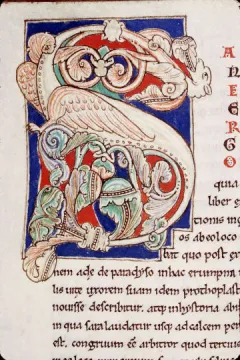 S
A
N
E
R
G
O
quia
liber g
tionis
os abeoloco
hat quo post
nem adę de paradyso inhac erumpna
uis uite uxorem suam idem prothoplast
mouisse describitur. atq; inhystoria
in qua laudatur usq; ad calcem
est. congruum eē arbitror quod